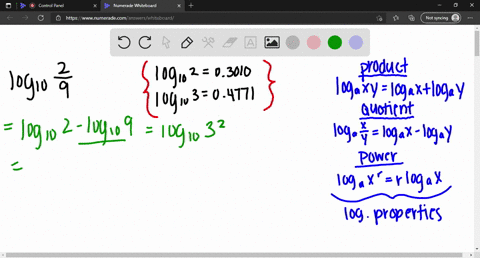 Control Panel
Numerade Whiteboard
https://www.numerade.com/answers/whiteboard/
Not syncing
log₁₀ 2/9
log₁₀ 2 = 0.3010
log₁₀ 3 = 0.4771
= log₁₀ 2 - log₁₀ 9 = log₁₀ 3²
=
product
logₐ xy = logₐ x + logₐ y
Quotient
logₐ x/y = logₐ x - logₐ y
Power
logₐ xʳ = r logₐ x
log. properties